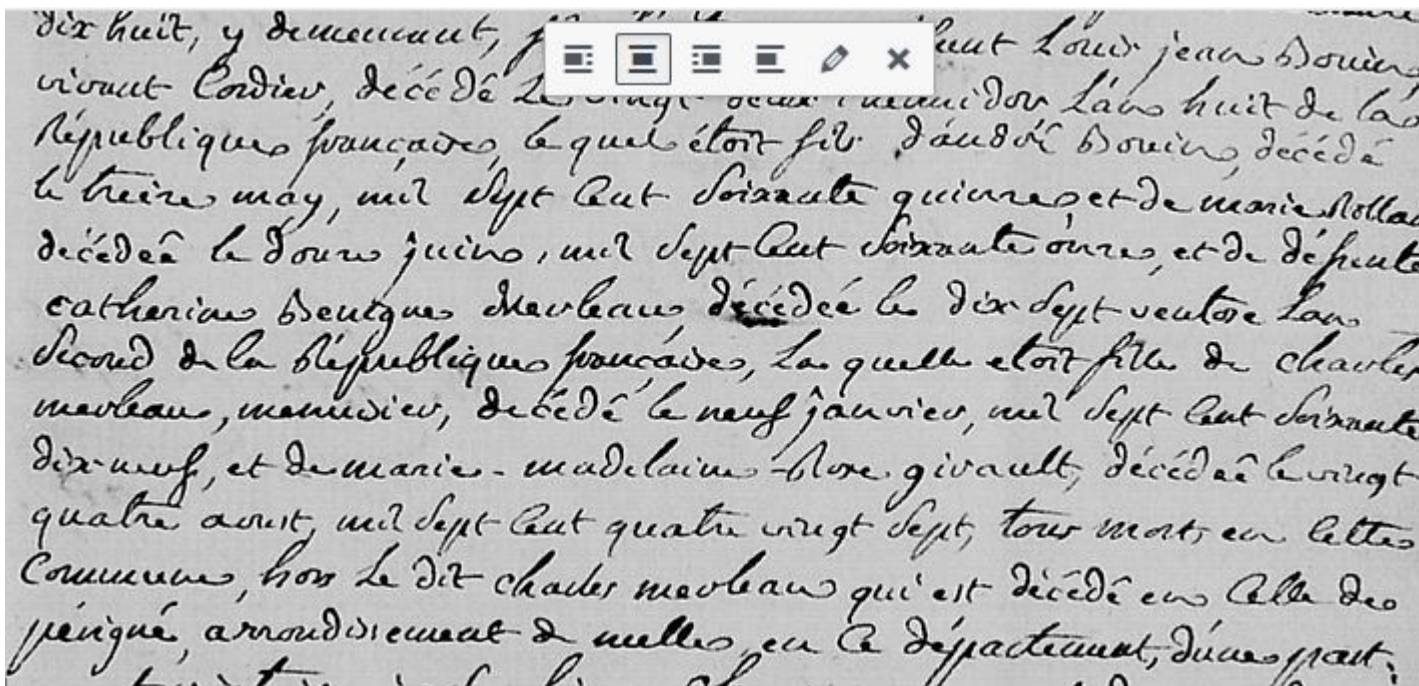 dix huit, y demeurant, funt Louis jean Bouin,
vivant Cordier, décédé Le vingt deux thermidor L'an huit de la
République française, le quel étoit fils d'andré Bouin, décédé
le treize may, mil sept Cent soixante quinze, et de marie Rolla
décédeé le douze juin, mil sept Cent soixante onze, et de défunte
catherine Benigne Merleau, décédeé le dix sept ventose L'an
second de la République française, La quelle etoit fille de charles
merleau, menuisier, décédé le neuf janvier, mil sept Cent soixante
dix-neuf, et de marie-madelaine-Rose girault, décédeé le vingt
quatre aoust, mil sept Cent quatre vingt sept, tous morts en cette
Commune, hors Le dit charles merleau qui est décédé en Celle de
périgné, arrondissement de melle, en Ce département, d'une part,